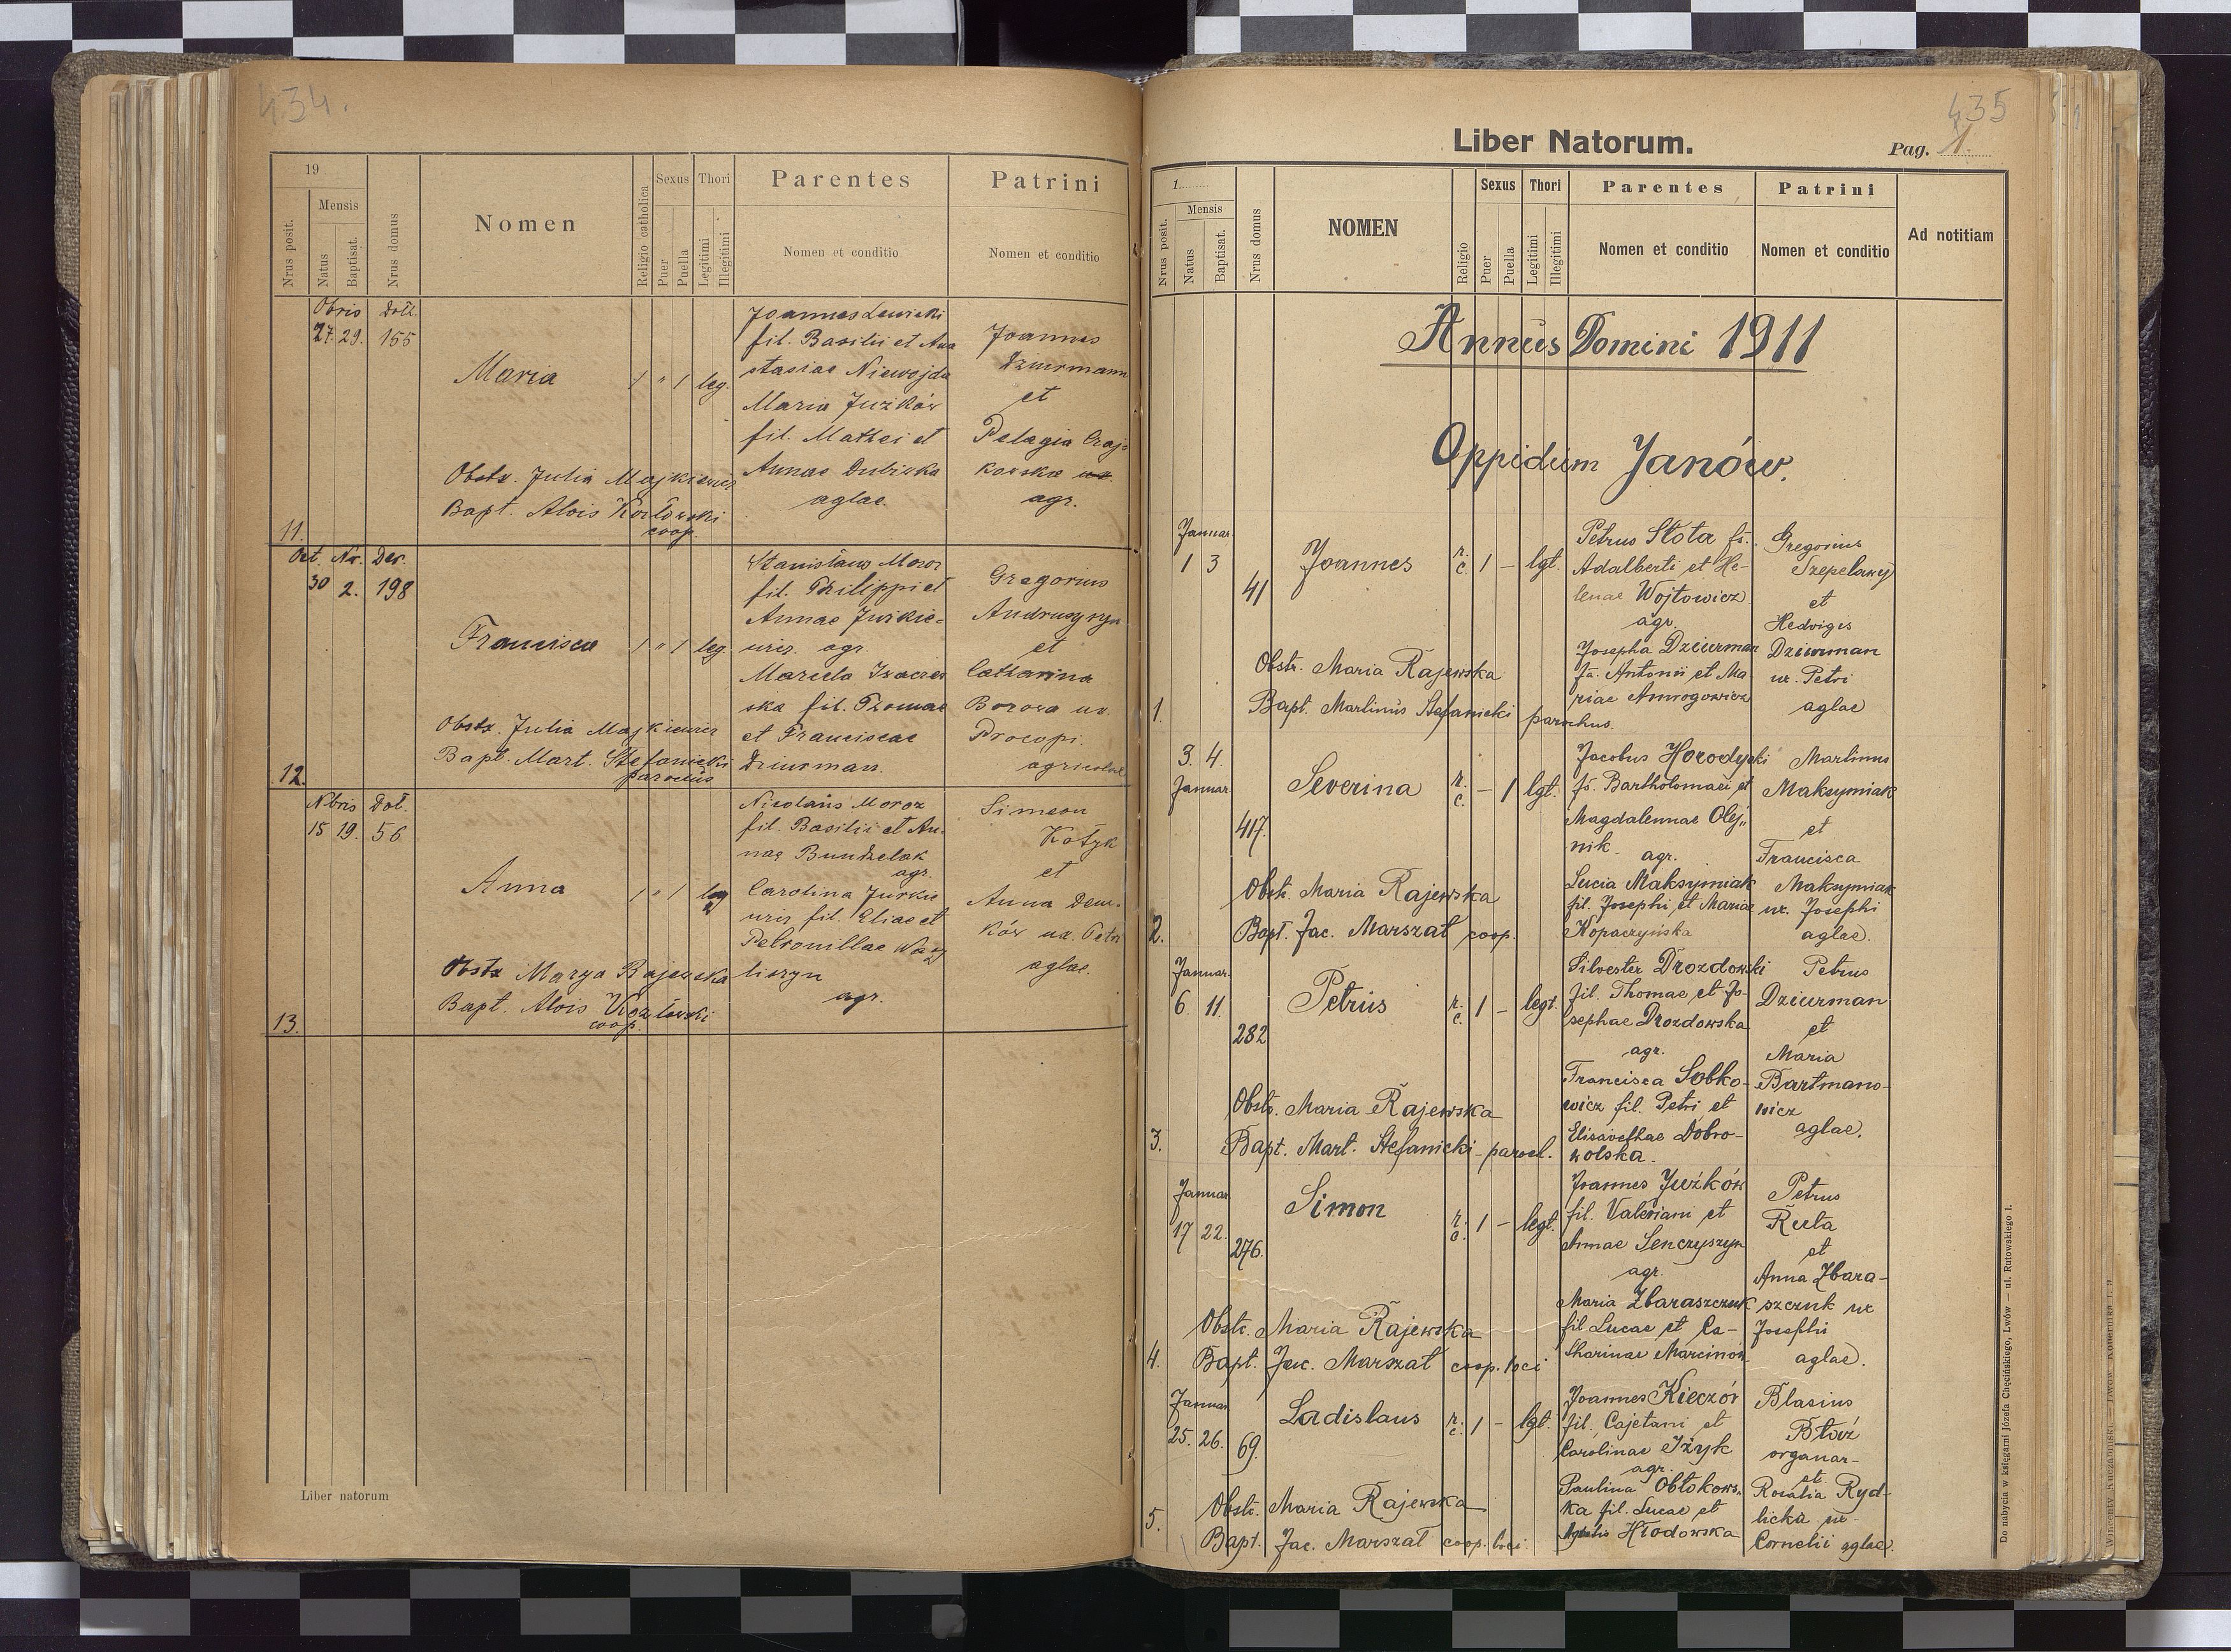 434.
19
Nrus posit.
Mensis
Natus
Baptisat.
Nrus domus
Nomen
Religio catholica
Sexus
Puer
Puella
Thori
Legitimi
Illegitimi
Parentes
Nomen et conditio
Patrini
Nomen et conditio
11.
Obris
27. 29.
Doł.
155
Maria
1 " 1 leg.
Obstx. Julia Majkiewicz
Bapt. Alois Kozłowski
coop.
Joannes Lewicki
fil. Basilii et Ana
stasiae Niewojda
Maria Juzków
fil. Mathei et
Annae Dubicka
aglae.
Joannes
Dziurmann
et
Pelagia
kowska
agr.
12.
Oct. Nv.
30 2.
Dev.
198
Francisca
1 " 1 leg.
Obstx. Julia Majkiewicz
Bapt. Mart. Stefanicki
parocus
Stanisłaus Moroz
fil. Philippi et
Annae Jurkie=
wicz. agr.
fil. Thomae
et Franciscae
Dziurman.
Gregorius
et
Catharina
Borowa ux.
Procopi.
agricolae
13.
Nbris
15 19.
Doł.
56
Anna
1 " 1 leg
Obstx Marya Rajewska
Bapt. Alois Kozłowski
coop.
Nicolaus Moroz
fil. Basilii et An.
nae Bundzelak
agr.
Carolina Jurkie
wicz fil. Eliae et
Petronillae
agr.
Simeon
Kotyk
et
Anna Dem.
ków ux. Petri
aglae.
Liber natorum
435
Liber Natorum.
Pag. 1.
1
Nrus posit.
Mensis
Natus
Baptisat.
Nrus domus
NOMEN
Religio
Sexus
Puer
Puella
Thori
Legitimi
Illegitimi
Parentes
Nomen et conditio
Patrini
Nomen et conditio
Ad notitiam
Annus Domini 1911
Oppidum Janów.
1.
Januar.
1 3
41
Joannes
r. c. 1 – lgt.
Obstr. Maria Rajewska
Bapt. Martinus Stefanicki parochus.
Petrus Słota fs.
Adalberti et He-
lenae Wojtowicz
agr.
Josepha Dziurman
fa. Antonii et Ma
riae
Gregorius
Szepelawy
et
Hedvigis
Dziurman
ux. Petri
aglae
2.
3. 4.
Januar.
417.
Severina
r. c. – 1 lgt.
Obstr. Maria Rajewska
Bapt. Jac. Marszał coop.
Jacobus Horodyski
fs. Bartholomaei et
Magdalennae Olej„
nik. agr.
Lucia Maksymiak
fil. Josephi et Mariae
Kopaczyńska
Martinus
Maksymiak
et
Francisca
Maksymiak
ux. Josephi
aglae.
3.
Januar.
6 11.
282
Petrus
r. c. 1 – legt.
Obstr. Maria Rajewska
Bapt. Mart. Stefanicki - paroch.
Silvester Drozdowski
fil. Thomae et Jo-
sephae Drozdowska
agr.
Francisca Sobko-
wicz fil. Petri et
Elisavethae Dobro-
wolska.
Petrus
Dziurman
et
Maria
Bartmano-
wicz
aglae.
4.
Januar.
17 22.
276.
Simon
r. c. 1 – legt.
Obstr. Maria Rajewska
Bapt. Jac. Marszał coop. loci
Joannes Juźków
fil. Valeriani et
Annae Senczyszyn
agr.
Maria Zbaraszczuk
fil Lucae et Ca-
tharinae Marcinow.
Petrus
Ruta
et
Anna Zbara-
szczuk ux
Josephi
aglae.
5.
Januar.
25. 26.
69.
Ladislaus
r. c. 1 – lgt.
Obstr. Maria Rajewska
Bapt. Jac. Marszał coop. loci
Joannes Kieczór
fil. Cajetani et
Carolinae Iżyk
agr.
Paulina Obłokows„
ka fil. Lucae et
Hłodowska
Blasius
Btoż
organar-
et.
Rosalia Ryd-
licka ux
Cornelii aglae.
Do nabycia w księgarni Józefa Chęcińskiego, Lwów — ul. Rutowskiego 1.